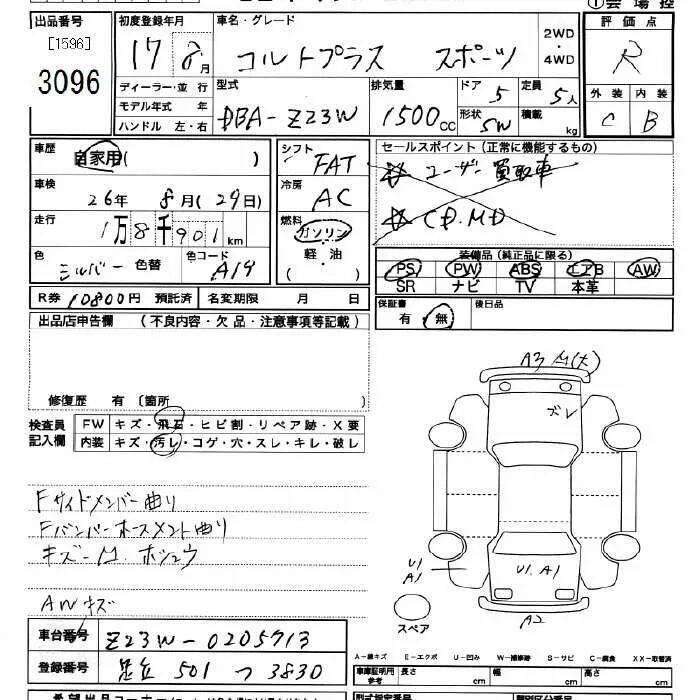 出品番号 初度登録年月 車名・グレード 2WD・4WD 評価点
[1596]
3096 17 8月 コルトプラス スポーツ R
ディーラー・並行 型式 排気量 ドア 5 定員 5人 外装 内装
モデル年式 年 DBA-Z23W 1500cc 形状 SW 積載 kg C B
ハンドル 左・右
車歴 自家用( ) シフト FAT セールスポイント(正常に機能するもの)
車検 26年 8月(29日) 冷房 AC ユーザー買取車
走行 1万8千901km 燃料 ガソリン CD.MD
色 シルバー 色替 色コード A19 軽油 ( )
装備品(純正品に限る)
PS PW ABS エアB AW
SR ナビ TV 本革
R券 10800円 預託済 名変期限 月 日
保証書 有 無 後日品
出品店申告欄 (不良内容・欠品・注意事項等記載)
修復歴 有 〔箇所
検査員記入欄 FW キズ・飛石・ヒビ割・リペア跡・X要
内装 キズ・汚レ・コゲ・穴・スレ・キレ・破レ
Fサイドメンバー曲り
Fバンパーホースメント曲り
キズ-凹 ホシュウ
AWキズ
A3
ズレ
U1
A1
U1.A1
A2
スペア
車台番号 Z23W-0205713
登録番号 足立 501 つ 3830
A-線キズ E-エクボ U-凹み W-補修跡 S-サビ C-腐食 XX-取替済
車庫証明用参考 長さ cm 幅 cm 高さ cm